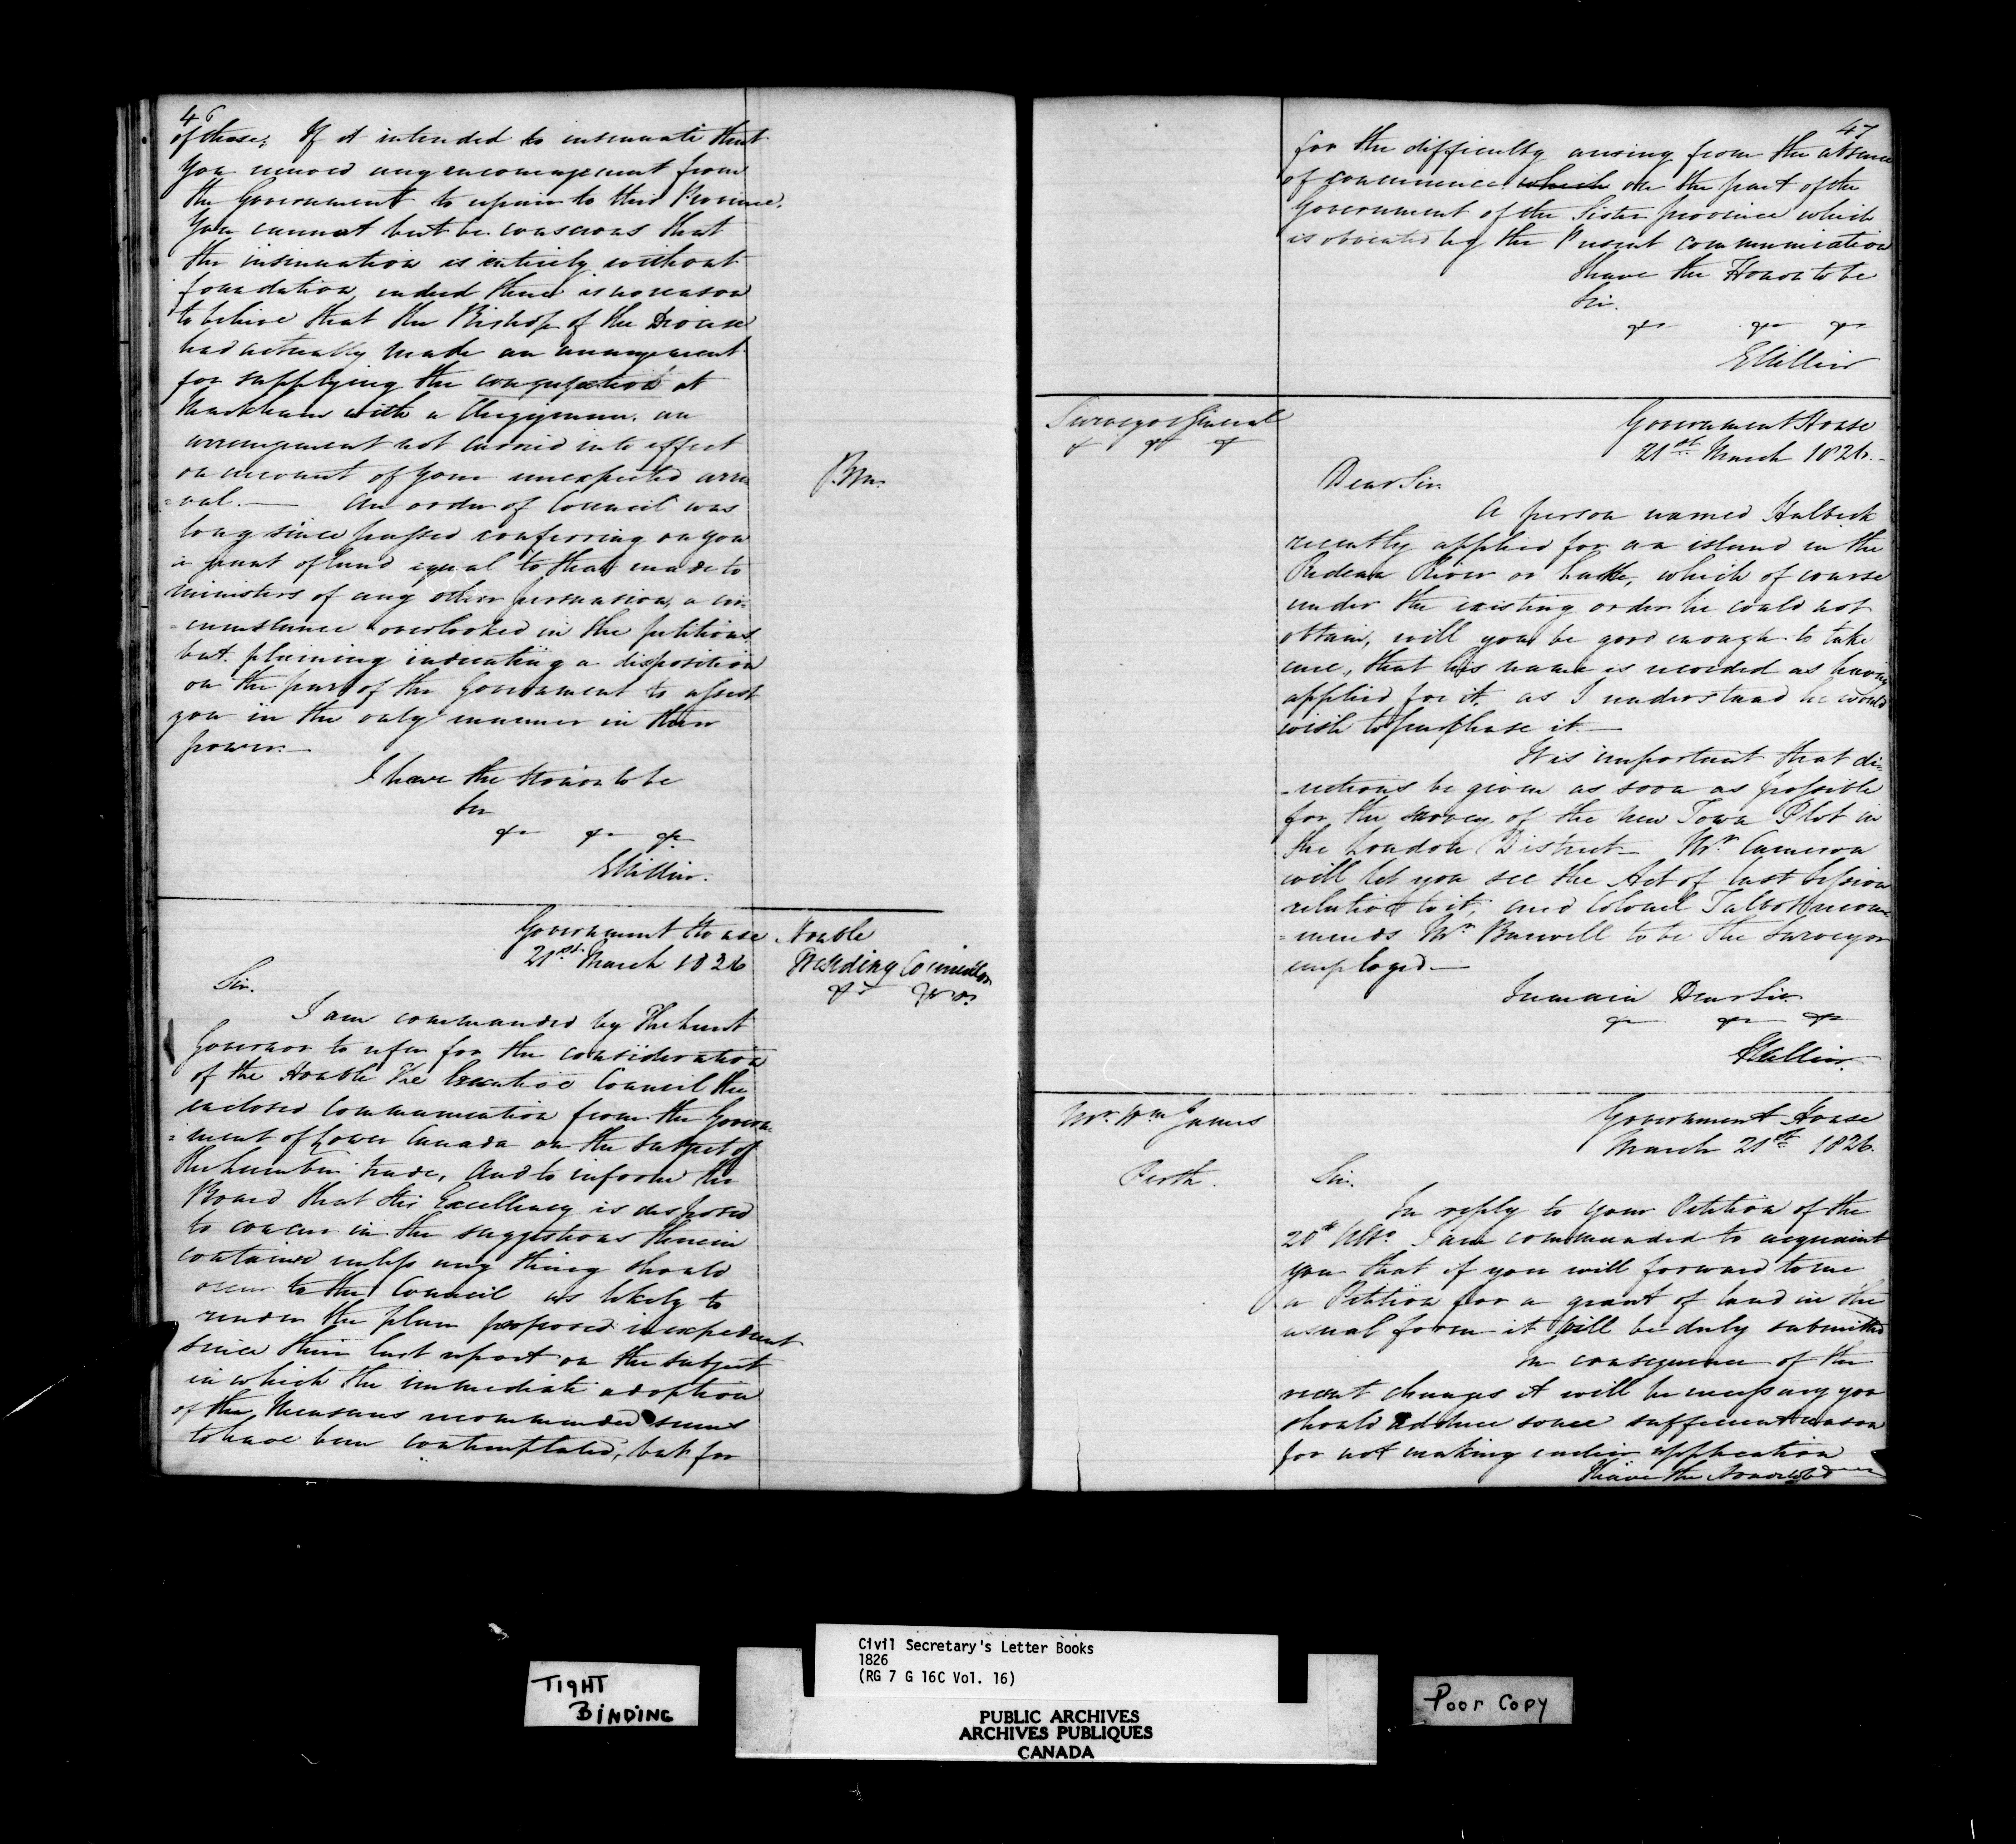 46
of those; If it intended to insinuate that
you received any encouragement from
the Government to repair to this Province.
You cannot but be conscious that
the insinuation is entirely without
foundation, indeed there is no reason
to believe that the Bishop of the Diocese
had actually made an arrangement
for supplying the congregation at
Markham with a Clergyman. an
arrangement not carried into effect
on account of your unexpected arri
=val.— An order of Council was
long since passed conferring on you
a grant of land equal to that made to
ministers of any other persuasion, a cir-
=cumstance overlooked in the petitions
but plainly indicating a disposition
on the part of the Government to assist
you in the only manner in their
power.—
I have the Honor to be
Sir
&c &c &c
GHillier.
Government House
21st March 1826
Honble
Presiding Councillor
&c &c &c
Sir.
I am commanded by The Lieut
Governor to refer for the consideration
of the Honble The Executive Council the
enclosed Communication from the Govern-
=ment of Lower Canada on the subject of
the Lumber trade, and to inform the
Board that His Excellency is disposed
to concur in the suggestions therein
contained unless any thing should
occur to the Council as likely to
render the plan proposed inexpedient
since their last report on the subject
in which the immediate adoption
of the Measures recommended seems
to have been contemplated, but for
47
for the difficulty arising from the absence
of concurrence which on the part of the
Government of the Sister province which
is obviated by the Present communication
I have the Honor to be
Sir.
&c &c &c
GHillier
Surveyor General
&c &c &c
Government House
21st March 1826.
Dear Sir
A person named Halbeck
recently applied for an island in the
Rideau River or Lake, which of course
under the existing order he could not
obtain, will you be good enough to take
care, that his name is recorded as having
applied for it, as I understand he would
wish to purchase it.—
It is important that di-
-rections be given as soon as possible
for the survey of the New Town Plot in
the London District— Mr Cameron
will let you see the Act of last Session
relative to it, and Colonel Talbot recom-
=mends Mr Burwell to be the Surveyor
employed.—
I remain Dear Sir
&c &c &c
GHillier.
Mr Wm James
Perth.
Government House
March 21st 1826.
Sir.
In reply to your Petition of the
20th Ulto. I am commanded to acquaint
you that if you will forward to me
a Petition for a grant of land in the
usual form it will be duly submitted
In consequence of the
recent changes it will be necessary you
should adduce some sufficient reason
for not making earlier application
I have the Honor to be
TIGHT
BINDING
Civil Secretary's Letter Books
1826
(RG 7 G 16C Vol. 16)
PUBLIC ARCHIVES
ARCHIVES PUBLIQUES
CANADA
Poor Copy